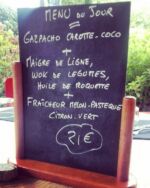 MENU DU JOUR
GAZPACHO CAROTTE-COCO
+
MAIGRE DE LIGNE,
WOK DE LEGUMES,
HUILE DE ROQUETTE
+
FRAÎCHEUR MELON-PASTEQUE
CITRON-VERT
21€